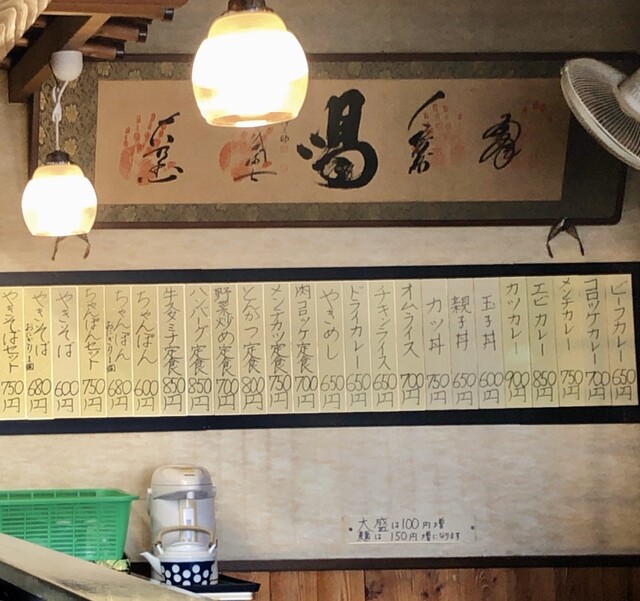 ビーフカレー 650円
コロッケカレー 700円
メンチカレー 750円
エビカレー 850円
カツカレー 900円
玉子丼 600円
親子丼 650円
カツ丼 750円
オムライス 700円
チキンライス 650円
ドライカレー 650円
やきめし 650円
肉コロッケ定食 700円
メンチカツ定食 750円
とんかつ定食 800円
野菜炒め定食 700円
ハンバーグ定食 850円
牛スタミナ定食 850円
ちゃんぽん 600円
ちゃんぽん おにぎり1個 680円
ちゃんぽんセット 750円
やきそば 600円
やきそば おにぎり1個 680円
やきそばセット 750円
大盛は100円増
は150円増になります